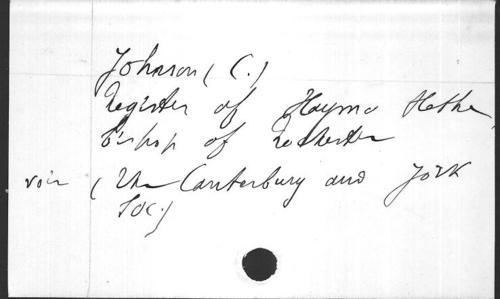 Johnson (C.)
Register of Haymo Hethe
bishop of Rochester
voir (The Canterbury and York
Soc.)